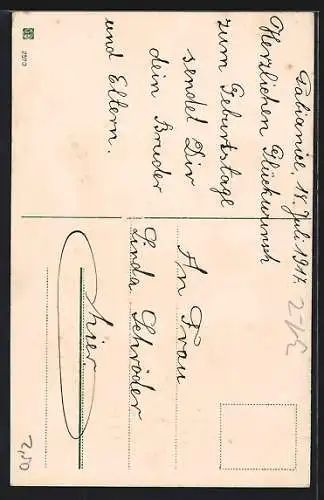 Pabianice, 18. Juli 1917.
Herzlichen Glückwunsch
zum Geburtstage
sendet Dir
dein Bruder
und Eltern.
An Frau
Linda Schröder
hier.
2,50